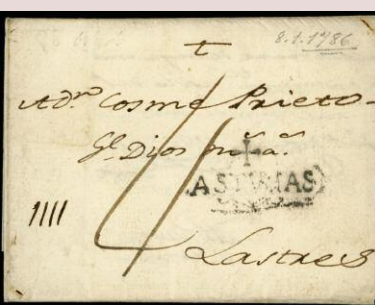 8.1.1786
A Dn Cosme Prieto
Gl. Dios ms as
ASTURIAS
4
Lastres